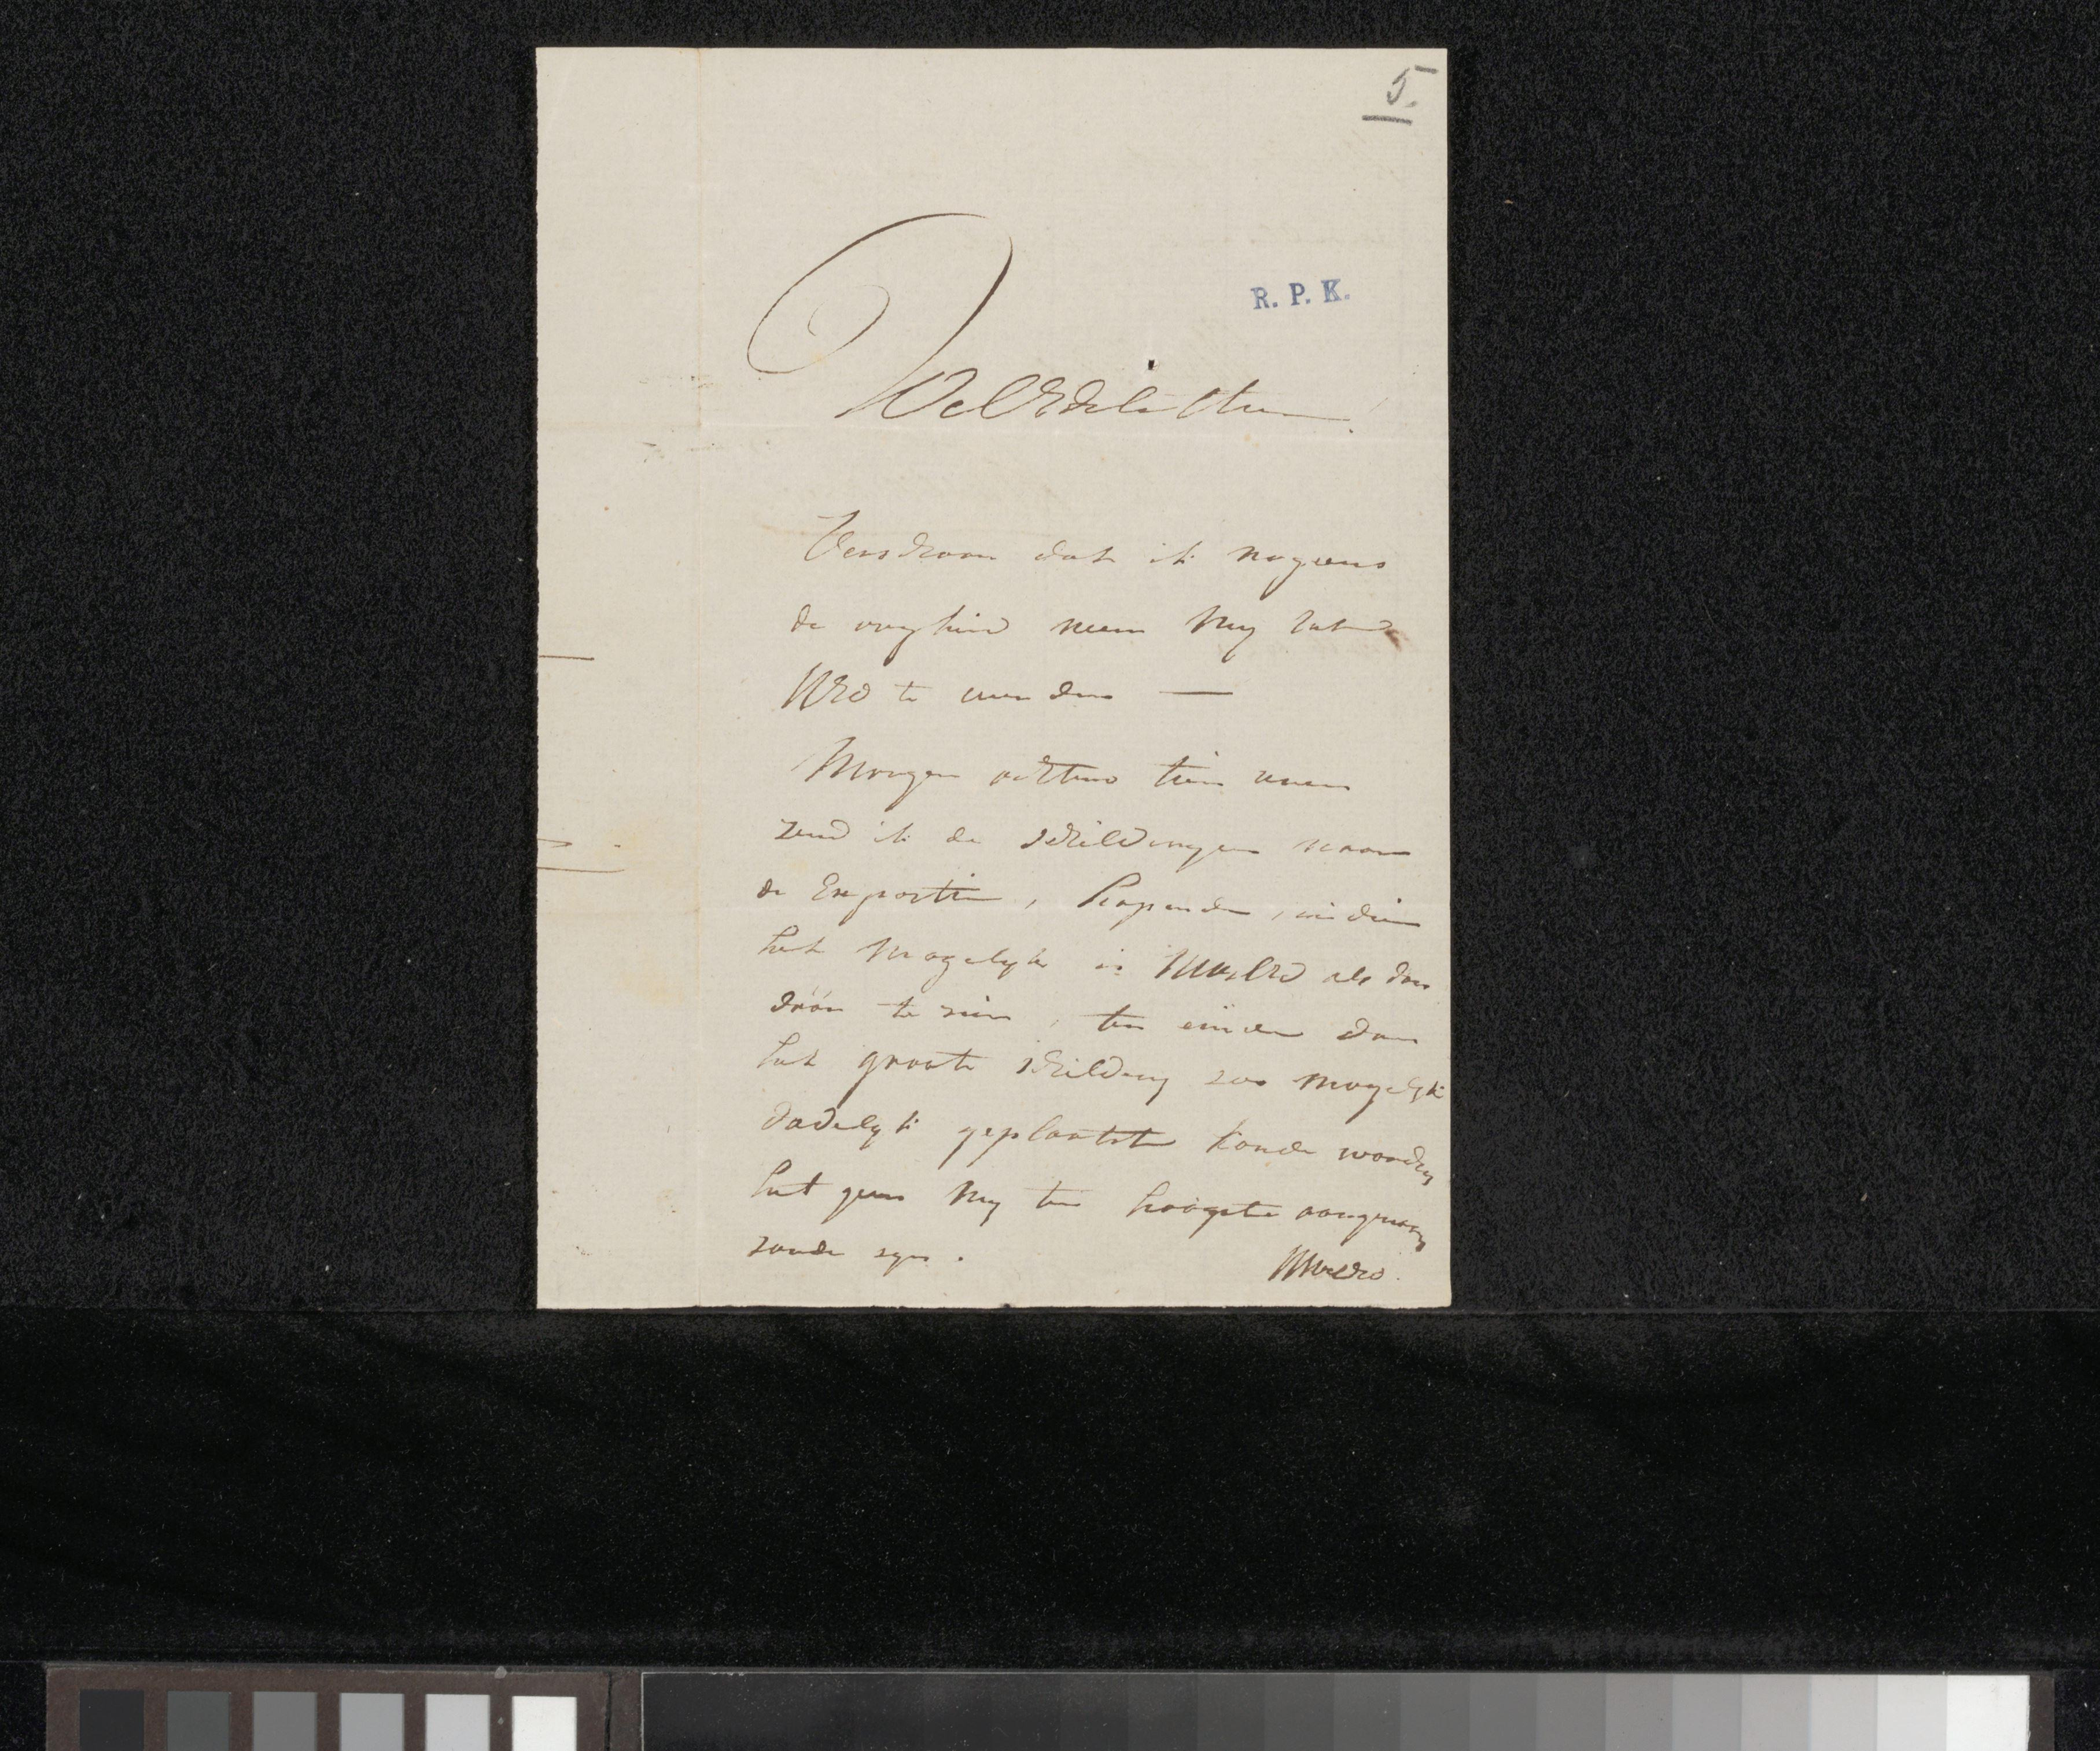 5.
R. P. K.
WelEdele Heer!
Verschoon dat ik nogeens
de vryheid neem My tot
UEd te wenden —
Morgen ochtend tien uuren
zend ik de schilderyen naar
de Expositie, hopende, indien
het Mogelyk is UWelEd als dan
daar te zien, ten einde dan
het groote schildery zoo mogelyk
dadelyk geplaatst konde worden
het geen My ten hoogste aangenaam
zoude zyn.
UWelEd.